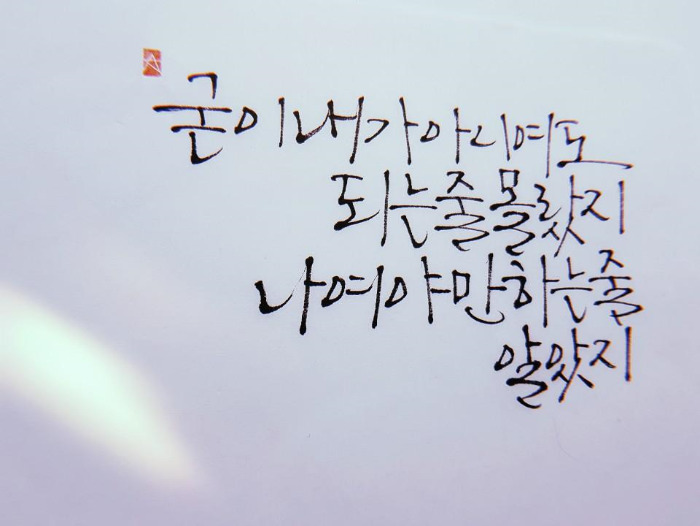 굳이 내가 아니여도
되는줄 몰랐지
나여야만 하는줄
알았지